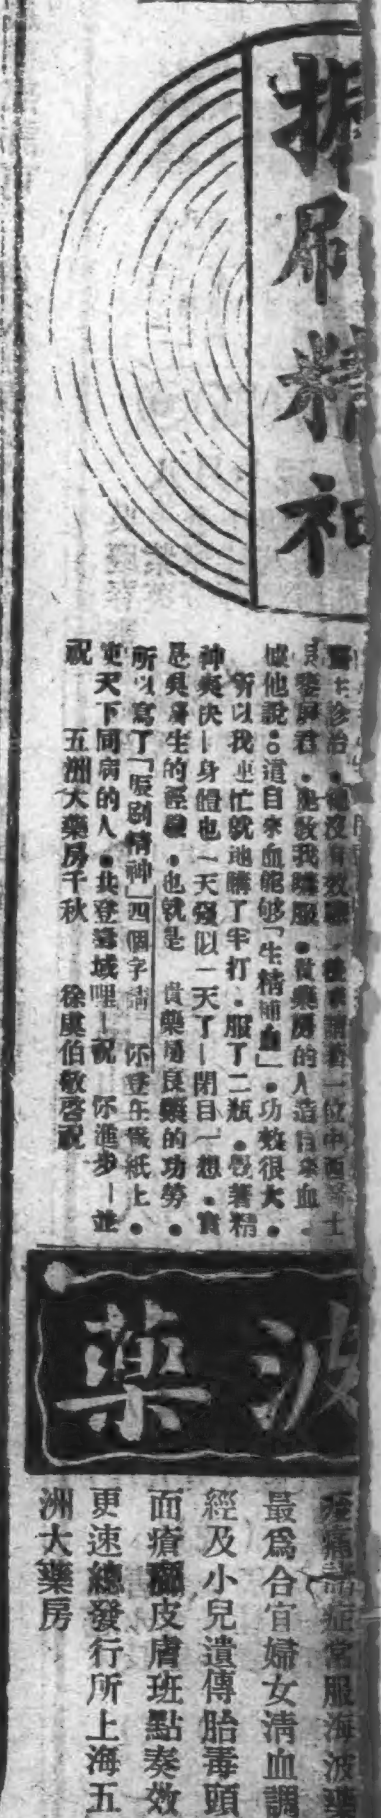 振刷精神
醫士診治．總沒有效驗．後來請着一位中西醫士
君．勸我購服．貴藥房的人造自來血．
據他說．這自來血能够「生精補血」．功效很大．
所以我連忙就地購了半打．服了二瓶．覺著精
神爽快－身體也一天强似一天了－閉目一想．實
是吳醫生的經驗．也就是 貴藥房良藥的功勞．
所以寫了「振刷精神」四個字請 你登在報紙上．
使天下同病的人．共登壽域哩－祝 你進步－並
祝 五洲大藥房千秋 徐虞伯敬啓祝
波藥
痠痛諸症常服海波藥
最爲合宜婦女淸血調
經及小兒遺傳胎毒頭
面瘡癤皮膚班點奏效
更速總發行所上海五
洲大藥房